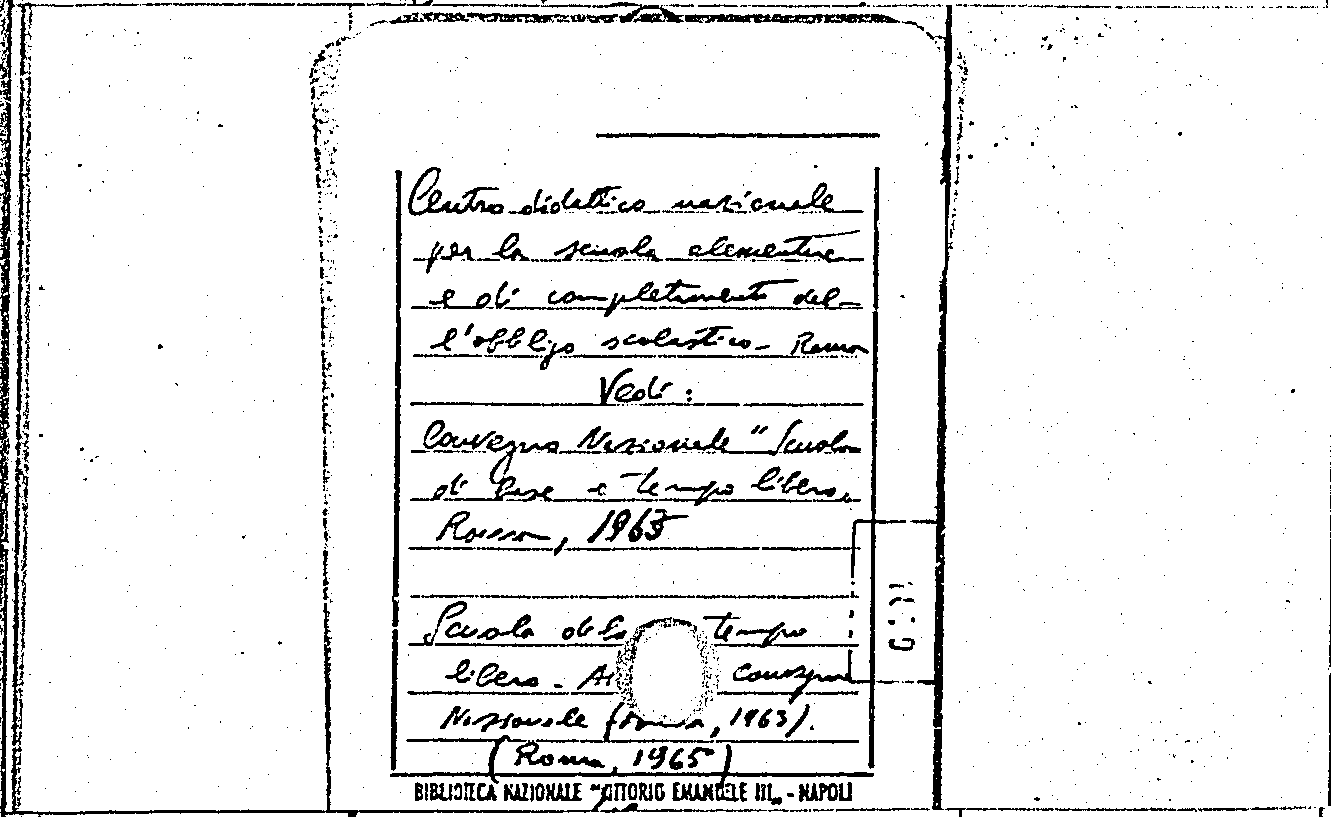 Centro didattico nazionale
per la scuola elementare
e di completamento del-
l'obbligo scolastico - Roma
Vedi:
Convegno Nazionale "Scuola
di base e tempo libero„
Roma, 1963
Scuola di tempo
libero - Convegno
Nazionale (Roma, 1963).
(Roma, 1965)
BIBLIOTECA NAZIONALE "VITTORIO EMANUELE III„ - NAPOLI